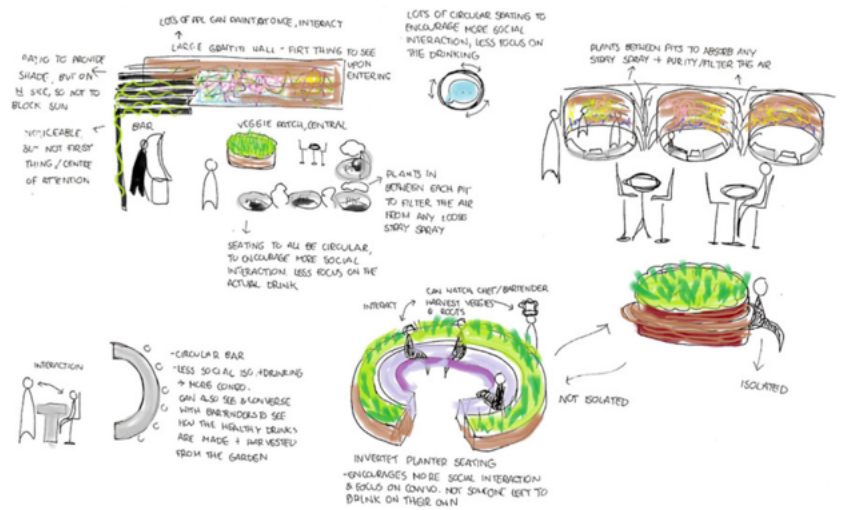 LOTS OF PPL CAN PAINT AT ONCE, INTERACT
LARGE GRAFITI WALL - FIRT THING TO SEE
UPON
ENTERING
PATIO TO PROVIDE
SHADE, BUT ON
N SIDE, SO NOT TO
BLOCK SUN
NOTICEABLE,
BUT NOT FIRST
THING/CENTRE
OF ATTENTION
BAR
VEGGIE PATCH, CENTRAL
PLANTS IN
BETWEEN EACH PIT
TO FILTER THE AIR
FROM ANY LOOSE
STRAY SPRAY
SEATING TO ALL BE CIRCULAR,
TO ENCOURAGE MORE SOCIAL
INTERACTION. LESS FOCUS ON THE
ACTUAL DRINK
LOTS OF CIRCULAR SEATING TO
ENCOURAGE MORE SOCIAL
INTERACTION, LESS FOCUS ON
THE DRINKING
PLANTS BETWEEN PITS TO ABSORB ANY
STRAY SPRAY + PURITY/FILTER THE AIR
INTERACTION
-CIRCULAR BAR
-LESS SOCIAL ISO. + DRINKING
→ MORE CONVO.
CAN ALSO SEE & CONVERSE
WITH BARTENDERS TO SEE
HOW THE HEALTHY DRINKS
ARE MADE + HARVESTED
FROM THE GARDEN
INTERACT
CAN WATCH CHEF/BARTENDER
HARVEST VEGGIES
& ROOTS
INVERTET PLANTER SEATING
-ENCOURAGES MORE SOCIAL INTERACTION
& FOCUS ON CONVO. NOT SOMEONE LEFT TO
DRINK ON THEIR OWN
NOT ISOLATED
ISOLATED